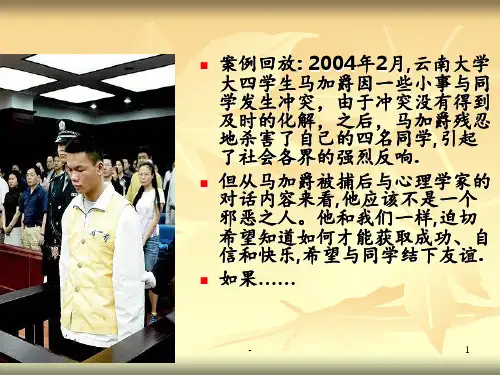 案例回放: 2004年2月,云南大学
大四学生马加爵因一些小事与同
学发生冲突，由于冲突没有得到
及时的化解，之后，马加爵残忍
地杀害了自己的四名同学,引起
了社会各界的强烈反响.
但从马加爵被捕后与心理学家的
对话内容来看,他应该不是一个
邪恶之人。他和我们一样,迫切
希望知道如何才能获取成功、自
信和快乐,希望与同学结下友谊.
如果……
-
1